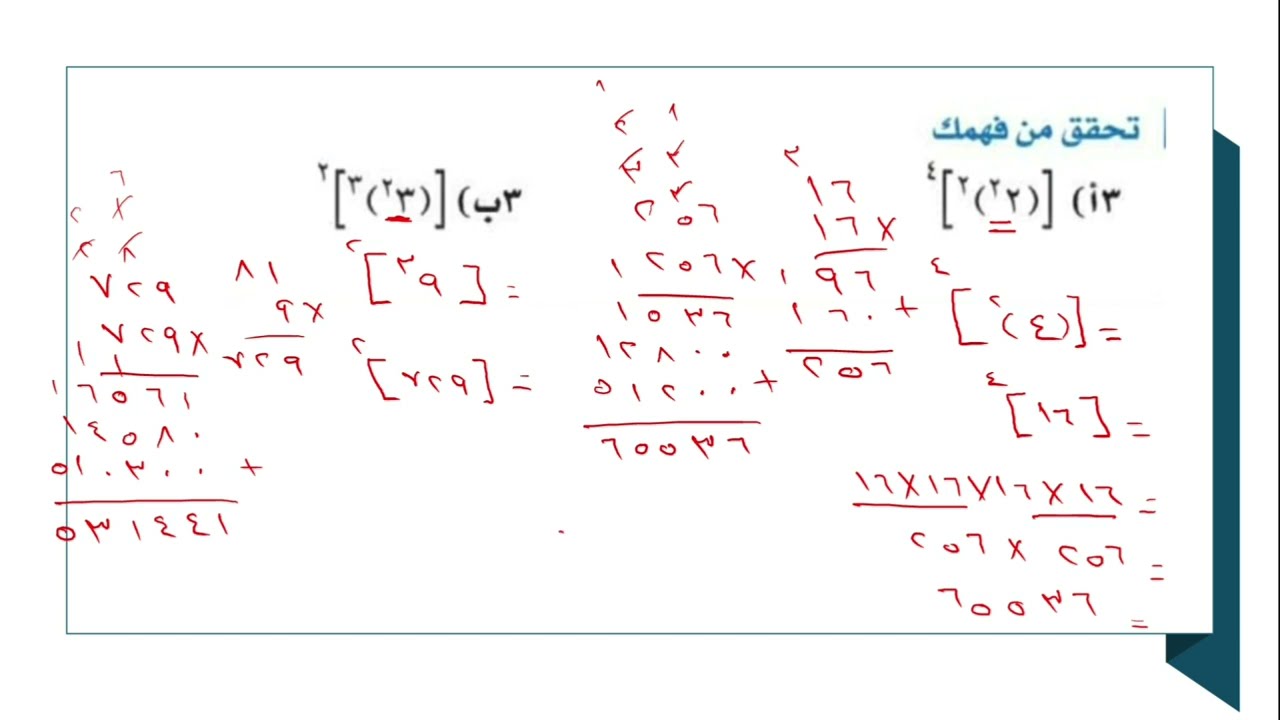 تحقق من فهمك
٣أ) [(٢^٢)^٢]^٤
= [(٤)^٢]^٤
= [١٦]^٤
= ١٦×١٦×١٦×١٦
= ٢٥٦ × ٢٥٦
= ٦٥٥٣٦
١٦
١٦ ×
٩٦
١٦٠ +
٢٥٦
٢٥٦
٢٥٦ ×
١٥٣٦
١٢٨٠٠
٥١٢٠٠ +
٦٥٥٣٦
٣ب) [(٣^٢)^٣]^٢
= [٩^٣]^٢
= [٧٢٩]^٢
٨١
٩ ×
٧٢٩
٧٢٩
٧٢٩ ×
٦٥٦١
١٤٥٨٠
٥١٠٣٠٠ +
٥٣١٤٤١